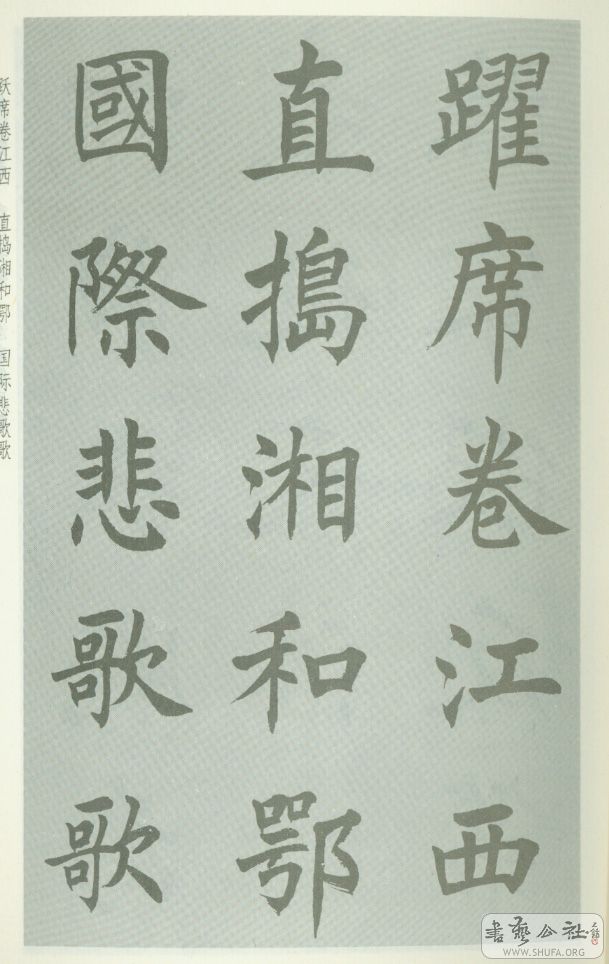 躍席卷江西
直搗湘和鄂
國際悲歌歌
跃席卷江西 直捣湘和鄂 国际悲歌歌
書藝公社
WWW.SHUFA.ORG